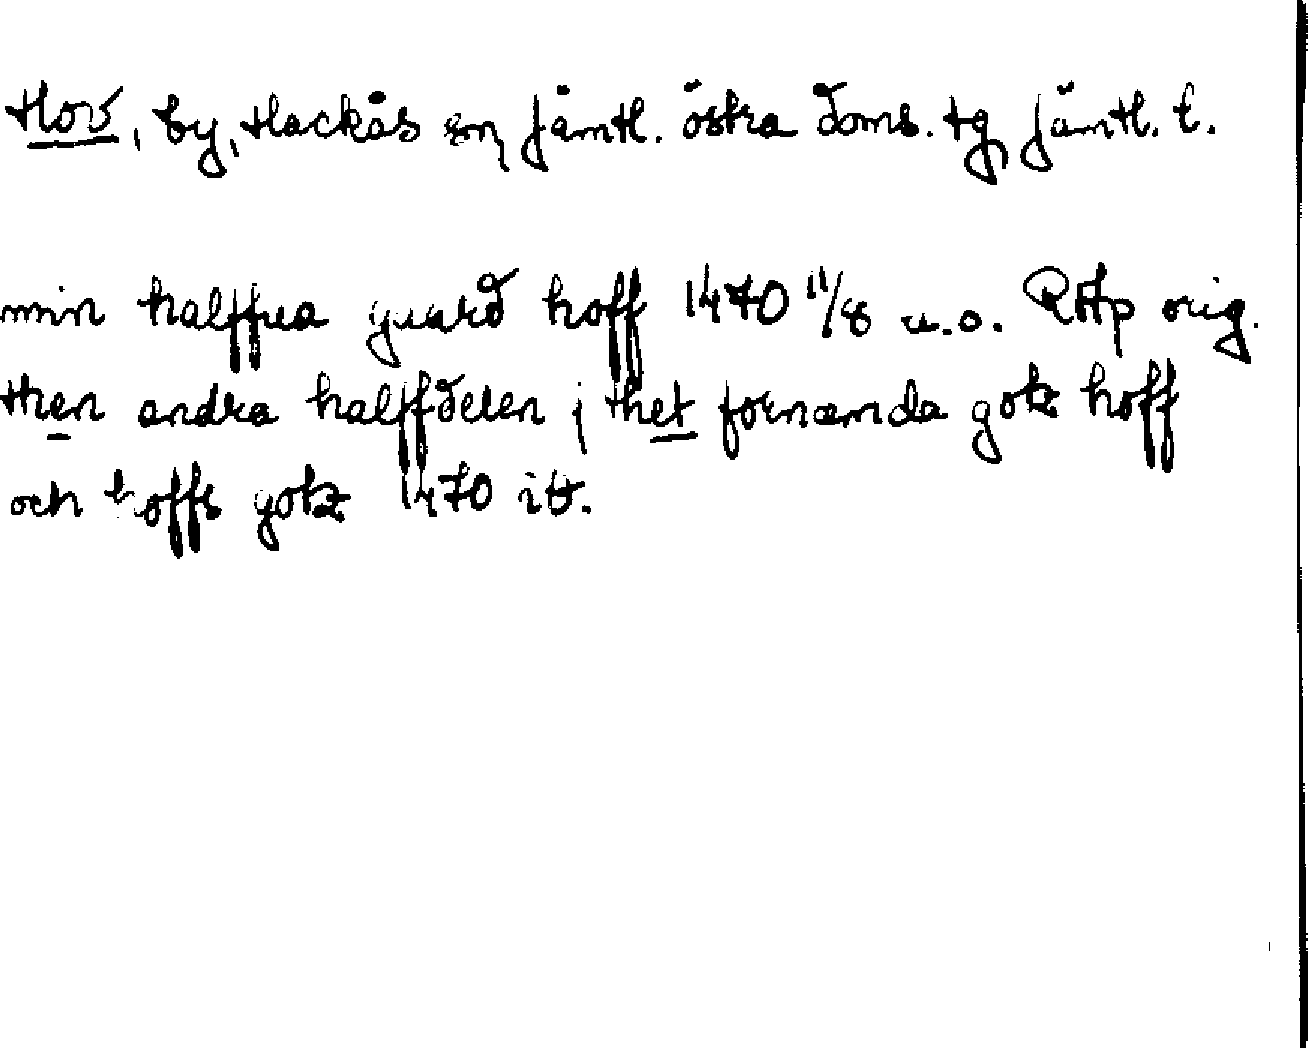 Hov, by, Hackås sn Jämtl. östra doms. tg, Jämtl. l.
min halffua guard hoff 1470 11/8 u.o. RAp orig.
then andra halffdelen j thet fornæmda gotz hoff
och hoffs gotz 1470 ib.